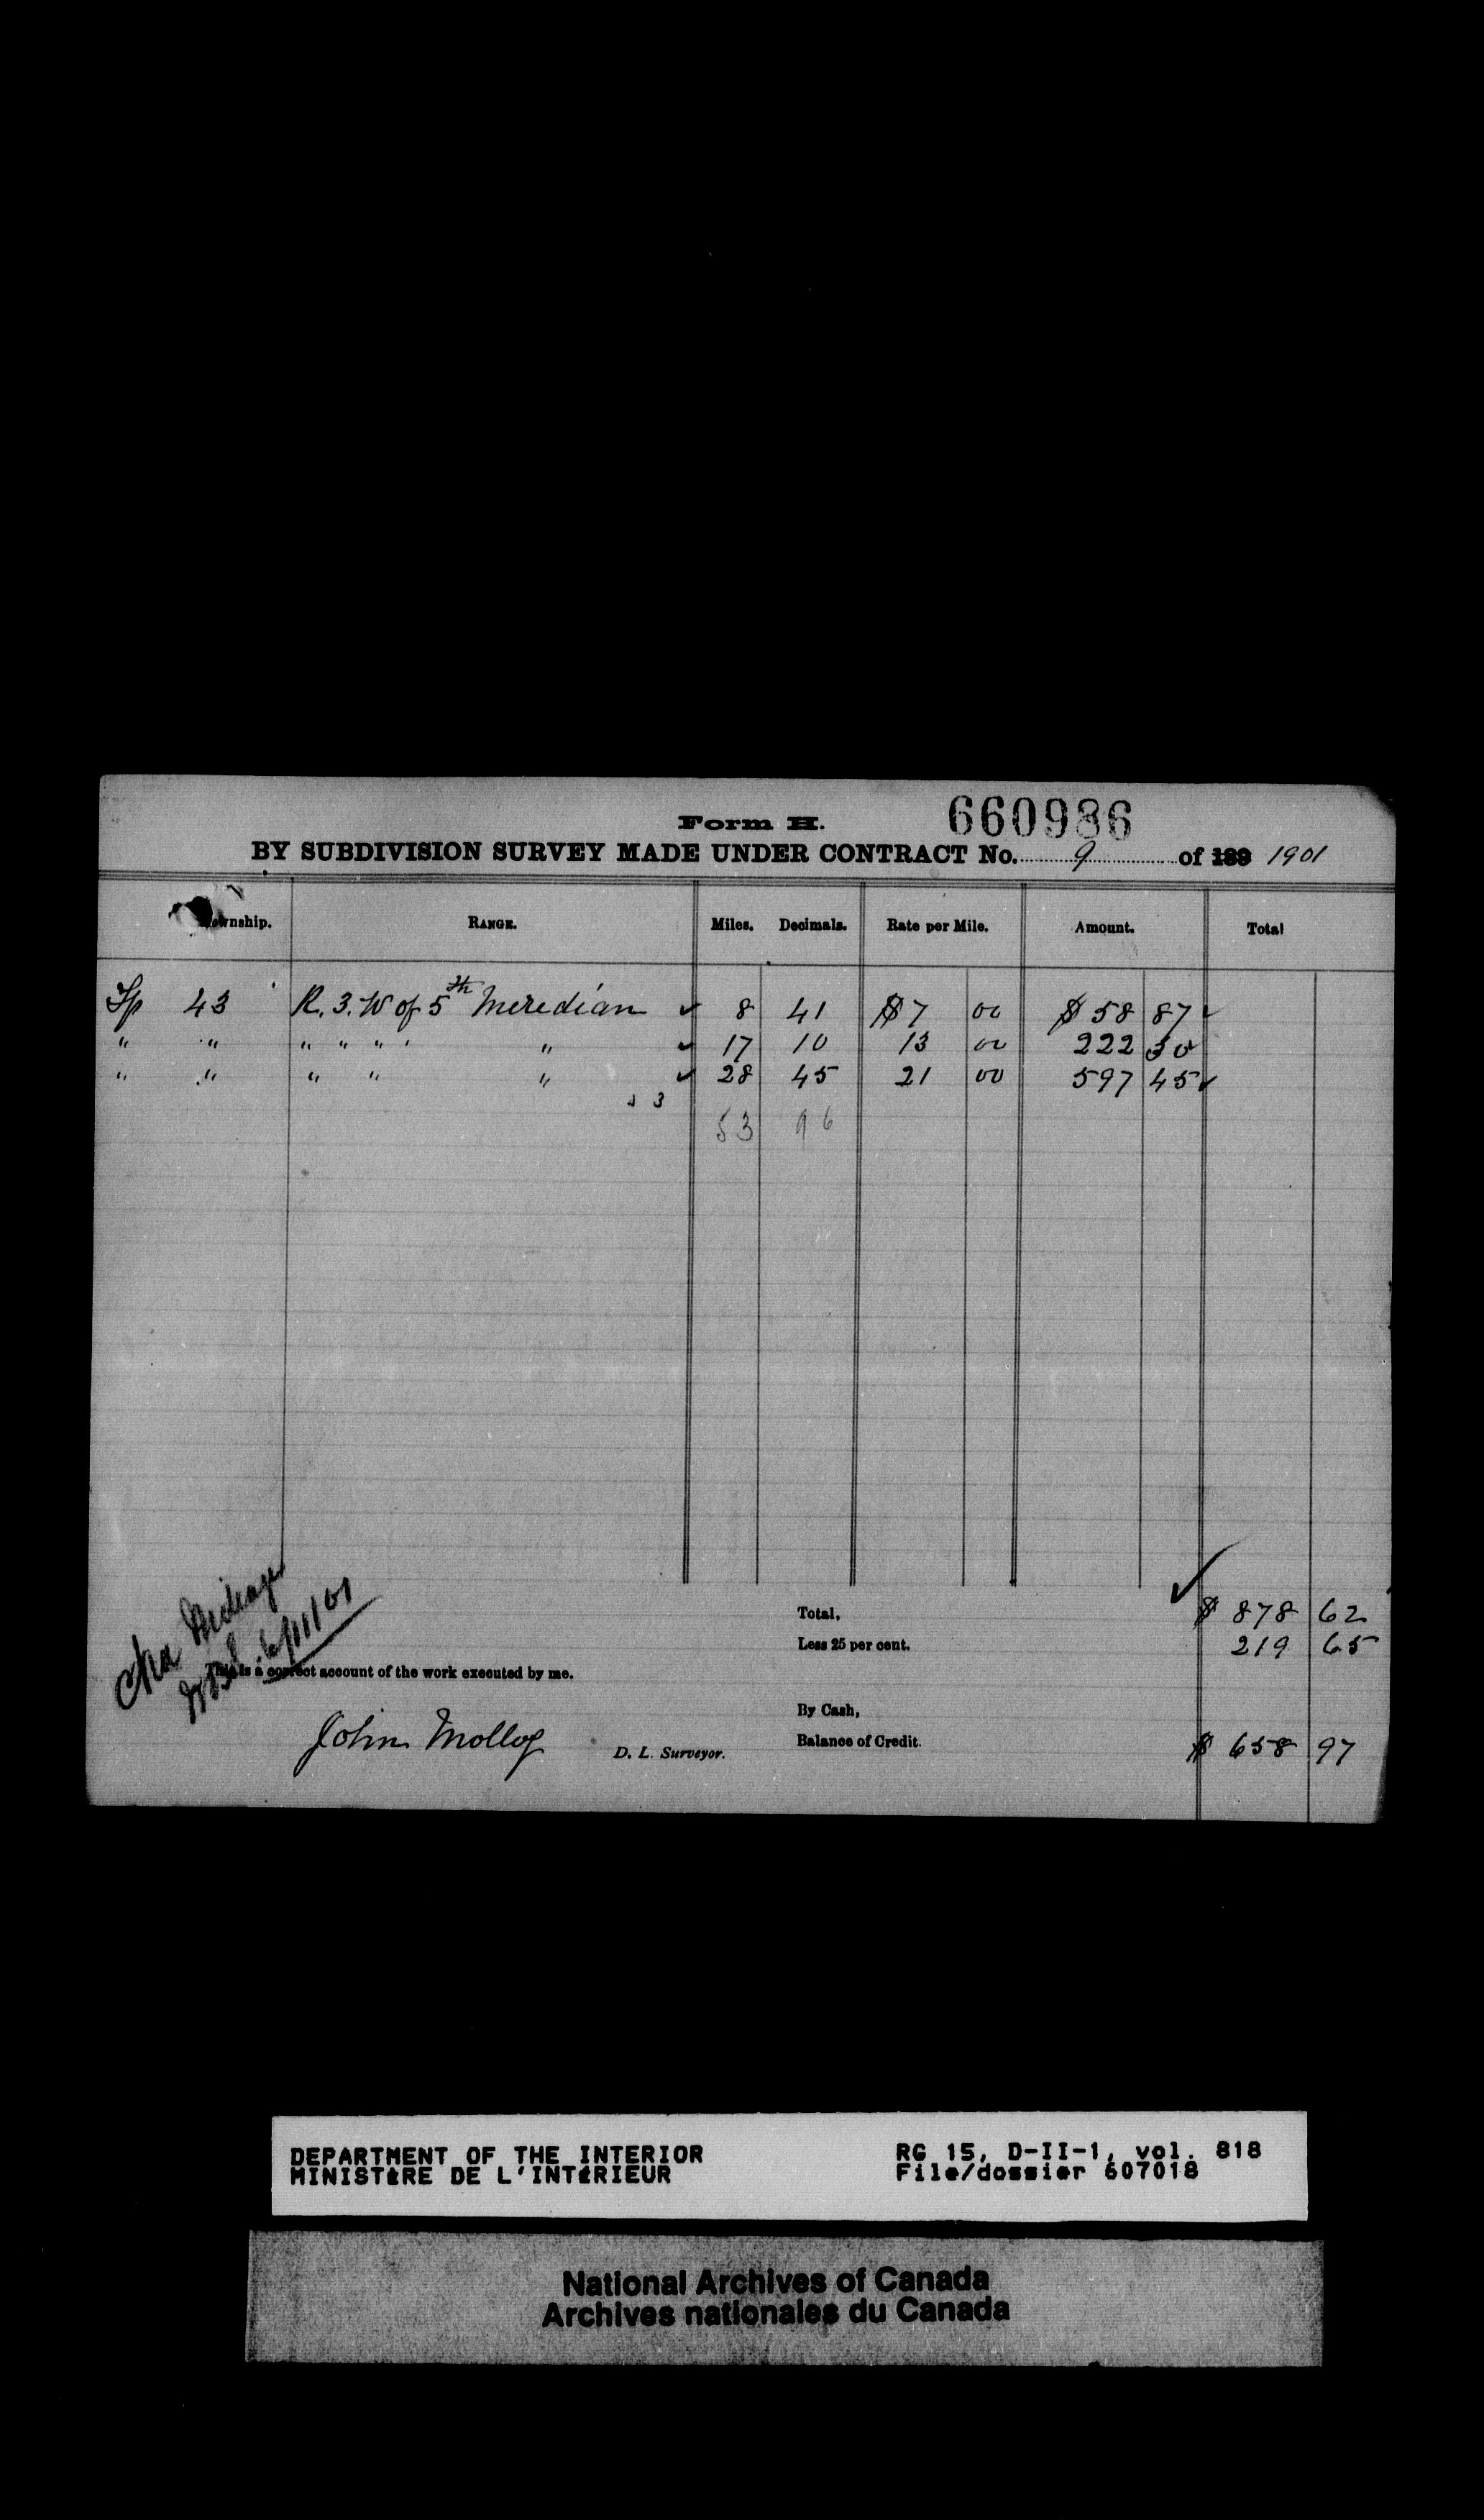 Form H. 660986
BY SUBDIVISION SURVEY MADE UNDER CONTRACT No. 9 of 189 1901
Township. RANGE. Miles. Decimals. Rate per Mile. Amount. Total
Tp 43 R. 3. W of 5th Meridian ✓ 8 41 $7 00 $58 87 ✓
" " " " " ' " ✓ 17 10 13 00 222 30
" " " " " ✓ 28 45 21 00 597 45 ✓
3
53 96
Total, ✓ $ 878 62
Less 25 per cent. 219 65
6/11/01
This is a correct account of the work executed by me.
By Cash,
John Molloy D. L. Surveyor.
Balance of Credit. $ 658 97
DEPARTMENT OF THE INTERIOR RG 15, D-II-1, vol. 818
MINISTÈRE DE L'INTÉRIEUR File/dossier 607018
National Archives of Canada
Archives nationales du Canada